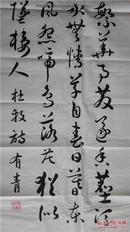 繁華事散逐香塵流
水無情草自春日暮東
風怨啼鳥落花猶似
墜樓人 杜牧詩 有青